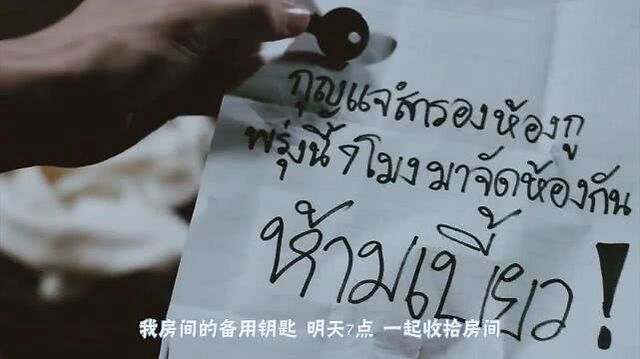 กุญแจสำรองห้องกู
พรุ่งนี้ 7 โมง มาจัดห้องกัน
ห้ามเบี้ยว!
我房间的备用钥匙 明天7点 一起收拾房间